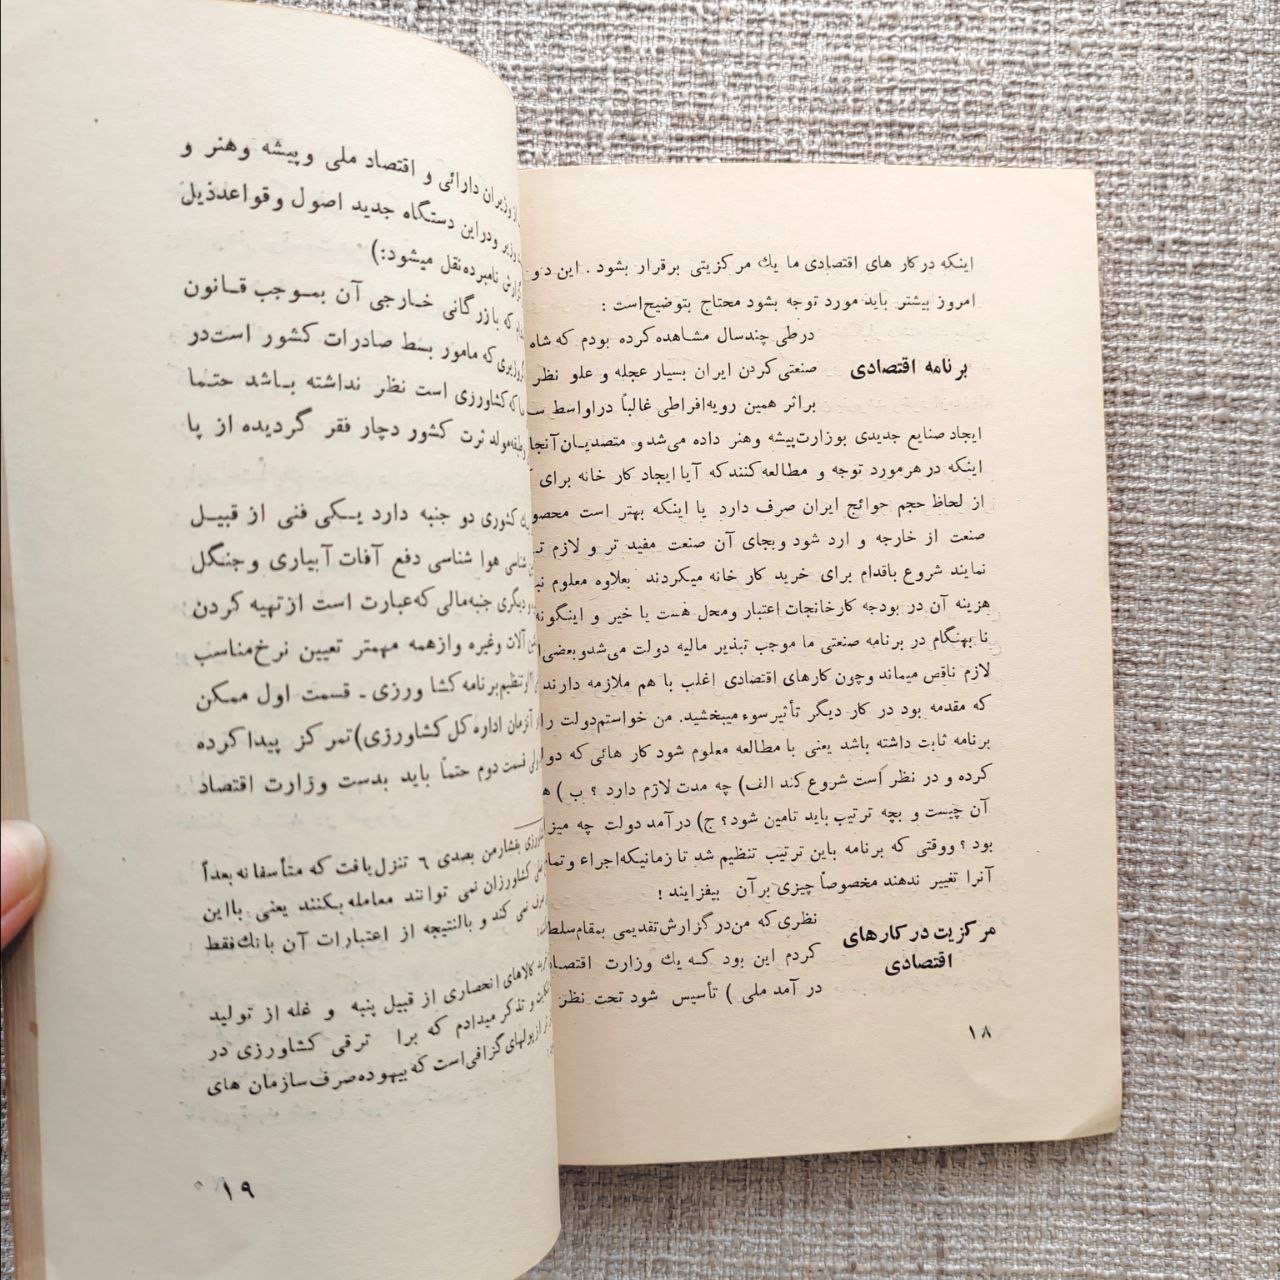 اینکه درکار های اقتصادی ما یك مرکزیتی برقرار بشود . این دو
امروز بیشتر باید مورد توجه بشود محتاج بتوضیح‌است :
برنامه اقتصادی
درطی چندسال مشاهده‌کرده بودم که شاه
صنعتی کردن ایران بسیار عجله و علو نظر
براثر همین رویه‌افراطی غالباً دراواسط
ایجاد صنایع جدیدی بوزارت‌پیشه وهنر داده می‌شدو متصدیان‌آنجا
اینکه در هرمورد توجه و مطالعه‌کنندکه آیا ایجاد کار خانه برای
از لحاظ حجم حوائج ایران صرف دارد یا اینکه بهتر است
صنعت از خارجه و ارد شود وبجای آن صنعت مفید تر و لازم
نمایند شروع باقدام برای خرید کار خانه میکردند بعلاوه معلوم
هزینه آن در بودجه کارخانجات اعتبار ومحل هست یا خیر و
نا بهنگام در برنامه صنعتی ما موجب تبذیر مالیه دولت می‌شدوبعضی
لازم ناقص میماند وچون کارهای اقتصادی اغلب با هم ملازمه دارند
که مقدمه بود در کار دیگر تأثیرسوء میبخشید. من خواستم‌دولت
برنامه ثابت داشته باشد یعنی با مطالعه معلوم شود کار هائی که
کرده و در نظر است شروع کند الف) چه مدت لازم دارد ؟ ب )
آن چیست و بچه ترتیب باید تامین شود؟ ج) درآمد دولت چه
بود ؟ ووقتی که برنامه باین ترتیب تنظیم شد تا زمانیکه‌اجراء
آنرا تغییر ندهند مخصوصاً چیزی برآن بیفزایند !
مرکزیت درکارهای
اقتصادی
نظری که من‌در گزارش‌تقدیمی بمقام‌
کردم این بود کـه یك وزارت
در آمد ملی ) تأسیس شود تحت نظر
۱۸
وزیران دارائی و اقتصاد ملی وپیشه وهنر و
ودراین دستگاه جدید اصول وقواعدذیل
نامبرده‌نقل میشود:)
که بازرگانی خـارجی آن بمـوجب قـانون
که مامور بسط صادرات کشور است‌در
که‌کشاورزی است نظر نداشته بـاشد حتـما
مولد ثرت کشور دچار فقر گردیده از پا
کشوری دو جنبه دارد یـکی فنی از قبیـل
شناسی هوا شناسی دفع آفات آبیاری وجنگل
دیگری جنبه‌مالی که‌عبارت است ازتهیه کردن
آلات وغیره وازهمه مهمتر تعیین نرخ‌مناسب
تنظیم‌برنامه‌کشا ورزی ـ قسمت اول ممکن
آنزمان اداره کل‌کشاورزی)تمرکز پیداکرده
قسمت دوم حتماً باید بدست وزارت اقتصاد
بفشارمن بصدی ۶ تنزل‌یافت که متأسفانه‌بعداً
کشاورزان نمی توانند معامله‌بکنند یعنی بااین
نمی کند و بالنتیجه از اعتبارات آن بانك‌فقط
کالاهای انحصاری از قبیل پنبه و غله از تولید
و تذکر میدادم که برا ترقی کشاورزی در
از پولهای‌گزافی‌است که‌بیهوده‌صرف‌سازمان های
۱۹